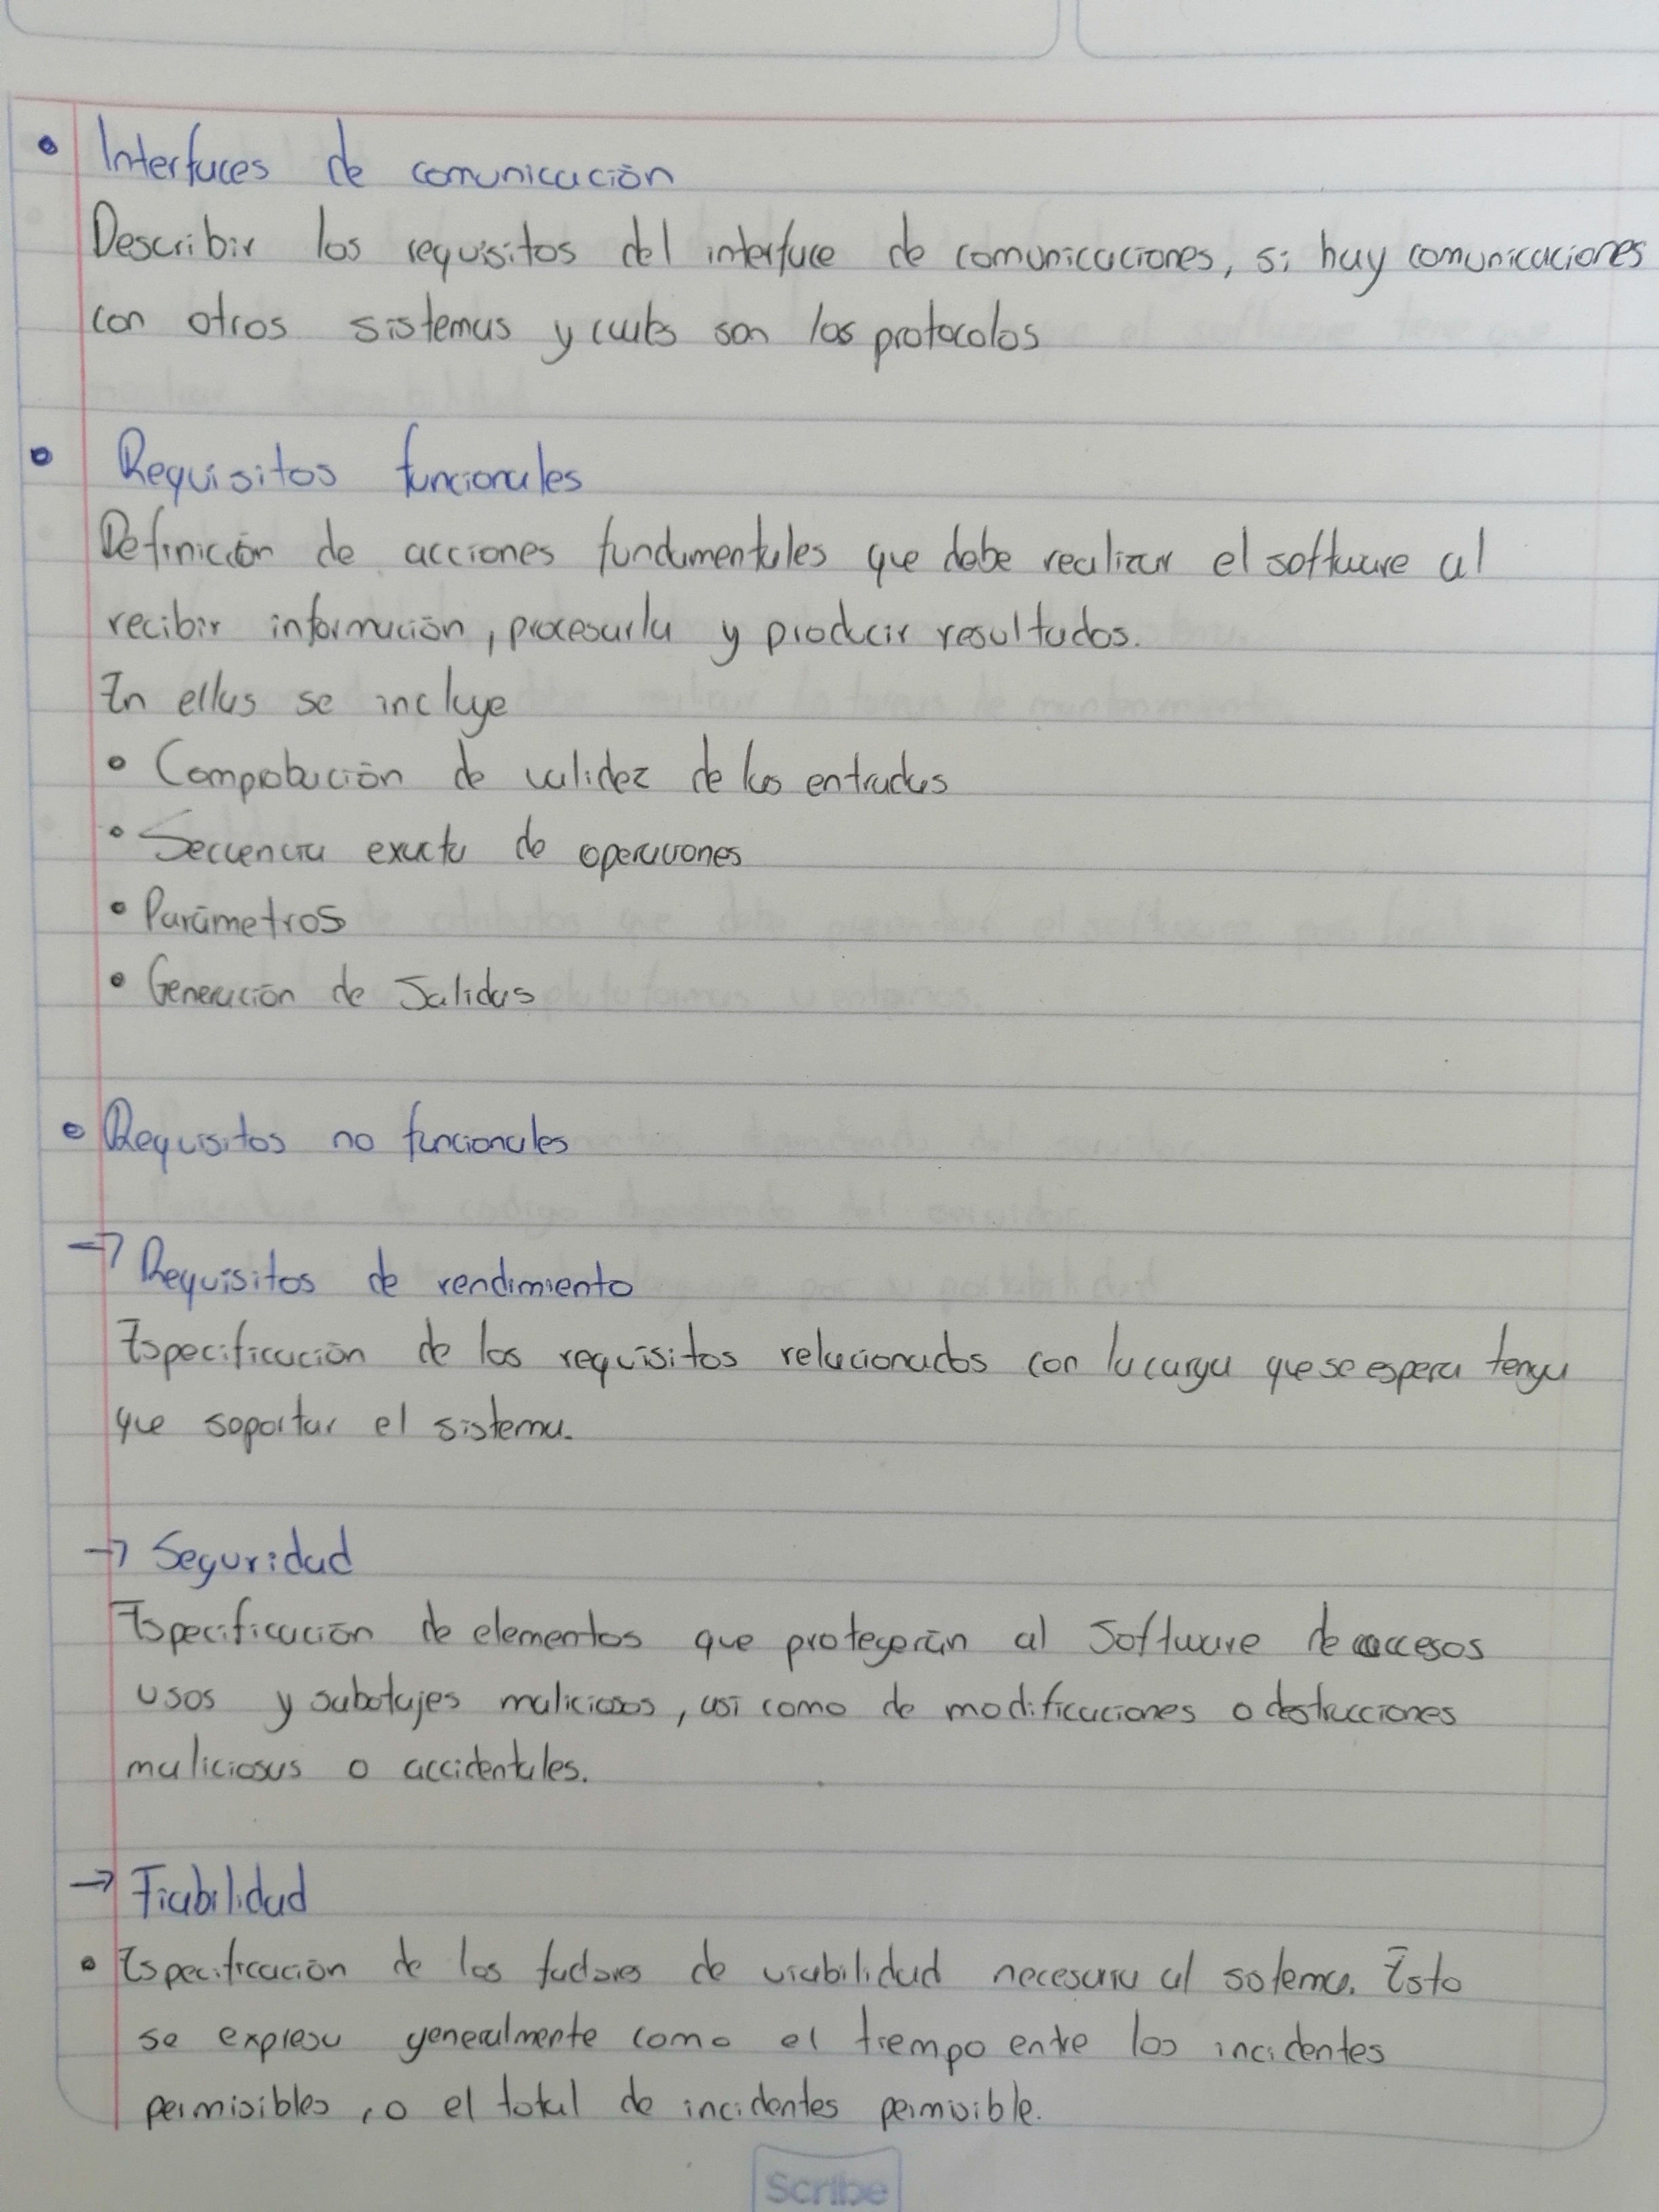 • Interfaces de comunicación
Describir los requisitos del interface de comunicaciones, si hay comunicaciones
con otros sistemas y cuales son los protocolos
• Requisitos funcionales
Definición de acciones fundamentales que debe realizar el software al
recibir información, procesarla y producir resultados.
En ellas se incluye
• Comprobación de validez de las entradas
• Secuencia exacta de operaciones
• Parámetros
• Generación de Salidas
• Requisitos no funcionales
→ Requisitos de rendimiento
Especificación de los requisitos relacionados con la carga que se espera tenga
que soportar el sistema.
→ Seguridad
Especificación de elementos que protegerán al Software de accesos
usos y sabotajes maliciosos, así como de modificaciones o destrucciones
maliciosas o accidentales.
→ Fiabilidad
• Especificación de los factores de viabilidad necesaria al sistema. Esto
se expresa generalmente como el tiempo entre los incidentes
permisibles, o el total de incidentes permisible.
Scribe